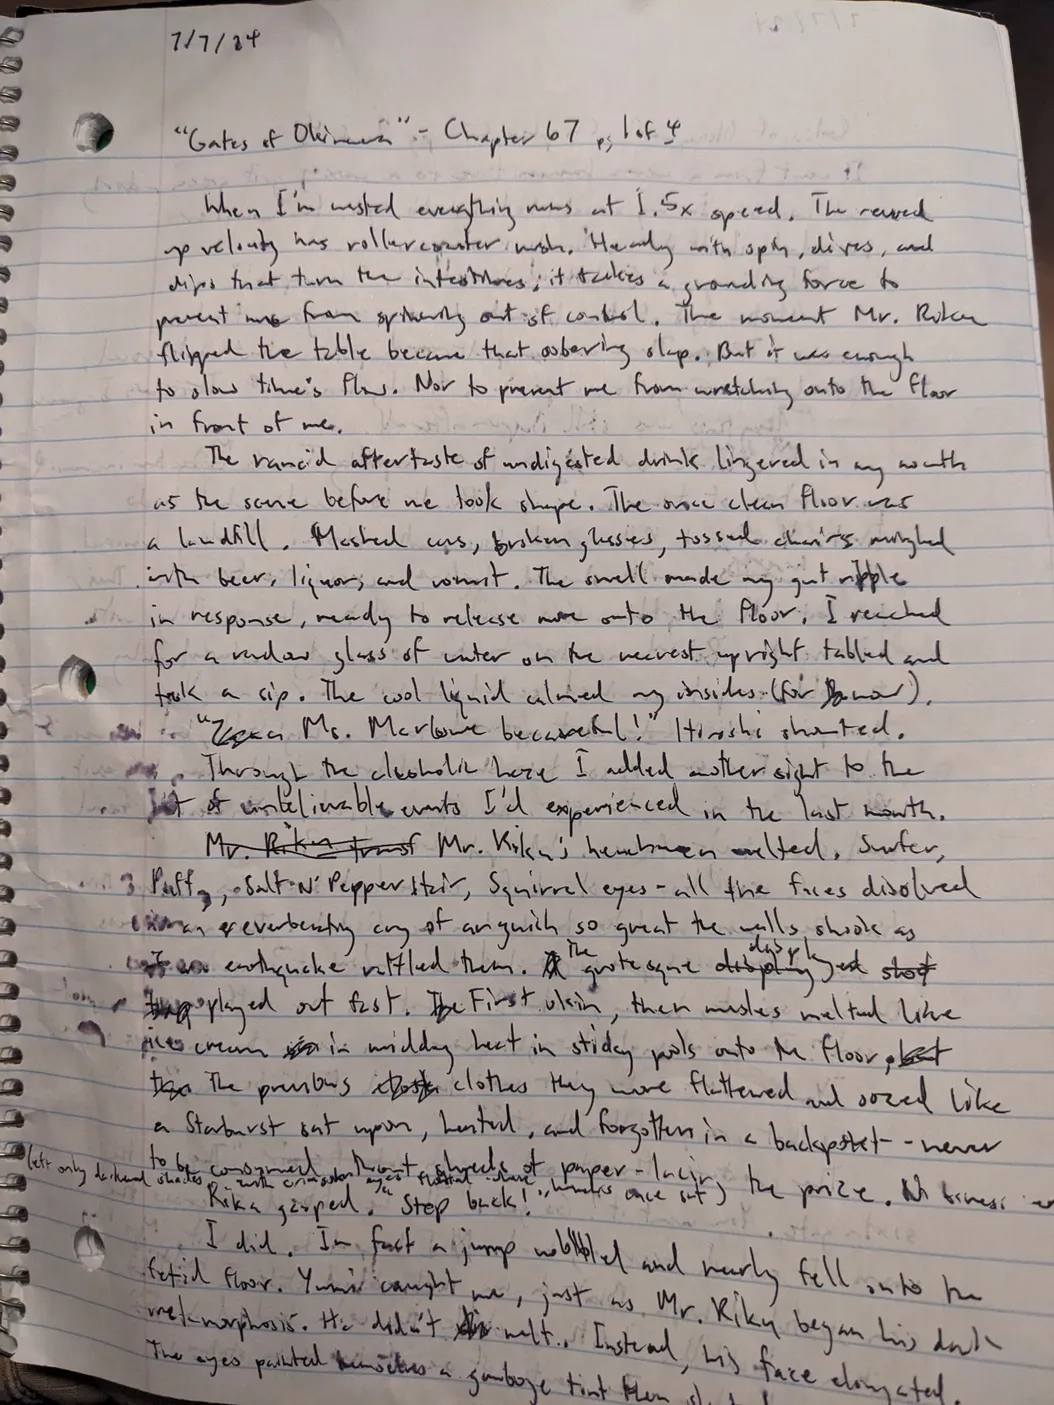 7/7/24
"Gates of Okinawa" - Chapter 67 pg 1 of 4
When I'm wasted everything runs at 1.5x speed. The revved
up velocity has rollercoaster rush. Heady with spin, dives, and
dips that turn the intestines; it takes a grounding force to
prevent me from spinning out of control. The moment Mr. Riku
flipped the table became that sobering slap. But it was enough
to slow time's flow. Nor to prevent me from wretching onto the floor
in front of me.
The rancid aftertaste of undigested drink lingered in my mouth
as the scene before me took shape. The once clean floor was
a landfill. Mashed, broken glasses, tossed chairs mingled
with beer, liquor, and vomit. The smell made my gut ripple
in response, ready to release more onto the floor. I reached
for a random glass of water on the nearest upright tabled and
took a sip. The cool liquid calmed my insides (for now).
Ms. Marlowe becareful!" Hiroshi shouted.
Through the alcoholic haze I added another sight to the
list of unbelievable events I'd experienced in the last month.
Mr. Riku Mr. Riku's henchmen melted. Surfer,
Puffy, Salt N' Pepper hair, Squirrel eyes - all the faces disolved
in an reverberating cry of anguish so great the walls shook as
if an earthquake rattled them. The grotesque display
played out fast. First skin, then muscles melted like
ice cream in midday heat in sticky pools onto the floor,
The previous clothes they wore flattened and oozed like
a Starburst sat upon, heated, and forgotten in a backpocket - never
to be consumed. shreds of paper - lacing the prize.
left only darkened shades with crimson eyes floated where once sat
Riku gasped. "Step back!"
I did. In fact a jump wobbled and nearly fell onto the
fetid floor. Yumi caught me, just as Mr. Riku began his dark
metamorphosis. He didn't melt. Instead, his face elongated.
The eyes painted themselves a gamboge tint then